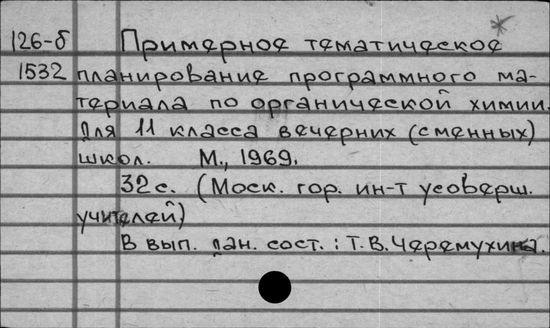 126-б Примерное тематическое
1532 планирование программного ма-
териала по органической химии.
Для 11 класса вечерних (сменных)
школ. М., 1969.
32 с. (Моск. гор. ин-т усоверш.
учителей)
В вып. дан. сост.: Т.В.Черемухина.